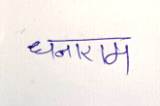 धनाराम